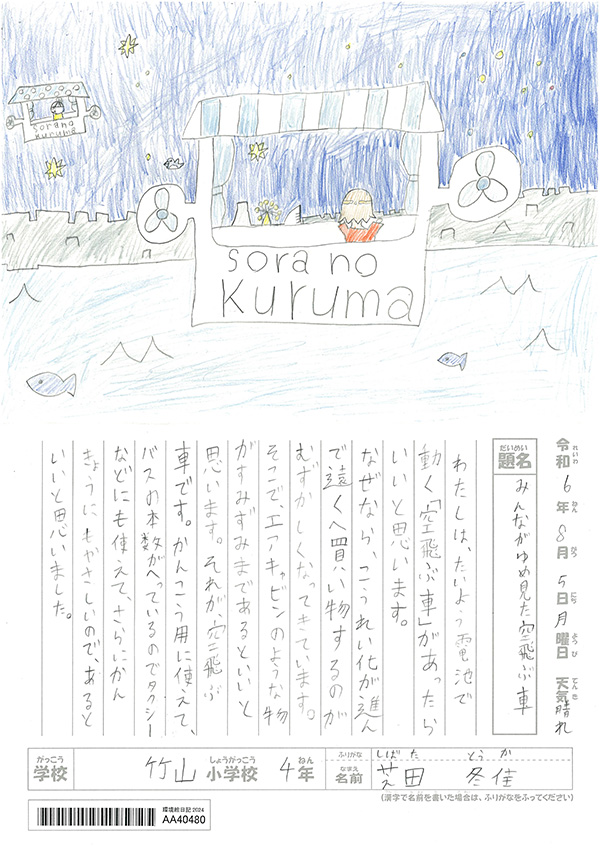 sora no
kuruma
sora no
Kuruma
令和6年8月5日月曜日 天気晴れ
れいわ ねん がつ にち ようび てんき
だいめい
題名
みんながゆめ見た空飛ぶ車
わたしは、たいよう電池で
動く「空飛ぶ車」があったら
いいと思います。
なぜなら、こうれい化が進ん
で遠くへ買い物するのが
むずかしくなってきています。
そこで、エアキャビンのような物
がすみずみまであるといいと
思います。それが、空飛ぶ
車です。かんこう用に使えて、
バスの本数がへっているのでタクシー
などにも使えて、さらにかん
きょうにもやさしいので、あると
いいと思いました。
がっこう
学校
竹山
しょうがっこう
小学校
4
ねん
年
ふりがな
しばた とうか
なまえ
名前
芝田 冬佳
(漢字で名前を書いた場合は、ふりがなをふってください)
環境絵日記2024
AA40480